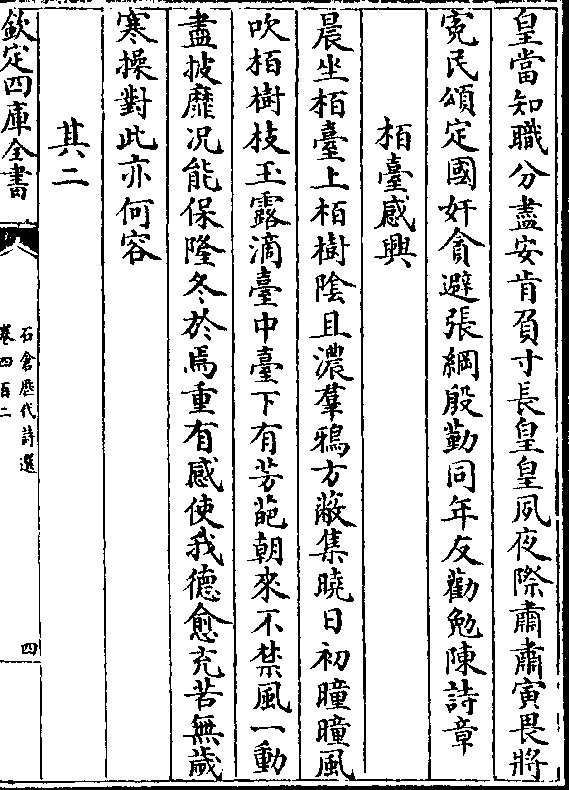 皇當知職分盡安肯負寸長皇皇夙夜際肅肅寅畏將
寃民頌定國奸貪避張綱殷勤同年友勸勉陳詩章
栢臺感興
晨坐栢臺上栢樹陰且濃羣鴉方蔽集曉日初曈曈風
吹栢樹枝玉露滴臺中臺下有芳葩朝來不禁風一動
盡披靡况能保隆冬於焉重有感使我德愈充苦無歲
寒操對此亦何容
其二
欽定四庫全書
石倉歷代詩選
卷四百二
四